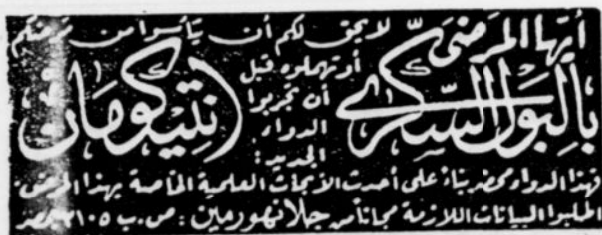 أيها المرضى
بالبول السكرى
لا يحق لكم أن تيأسوا من مرضكم
أو تهملوه قبل
أن تجربوا
الدواء
الجديد:
انتيكومان
فهذا الدواء محضر بناءً على أحدث الأبحاث العلمية الخاصة بهذا المرض.
اطلبوا البيانات اللازمة مجاناً من جلانهورمين: ص.ب ٢١٠٥ مصر